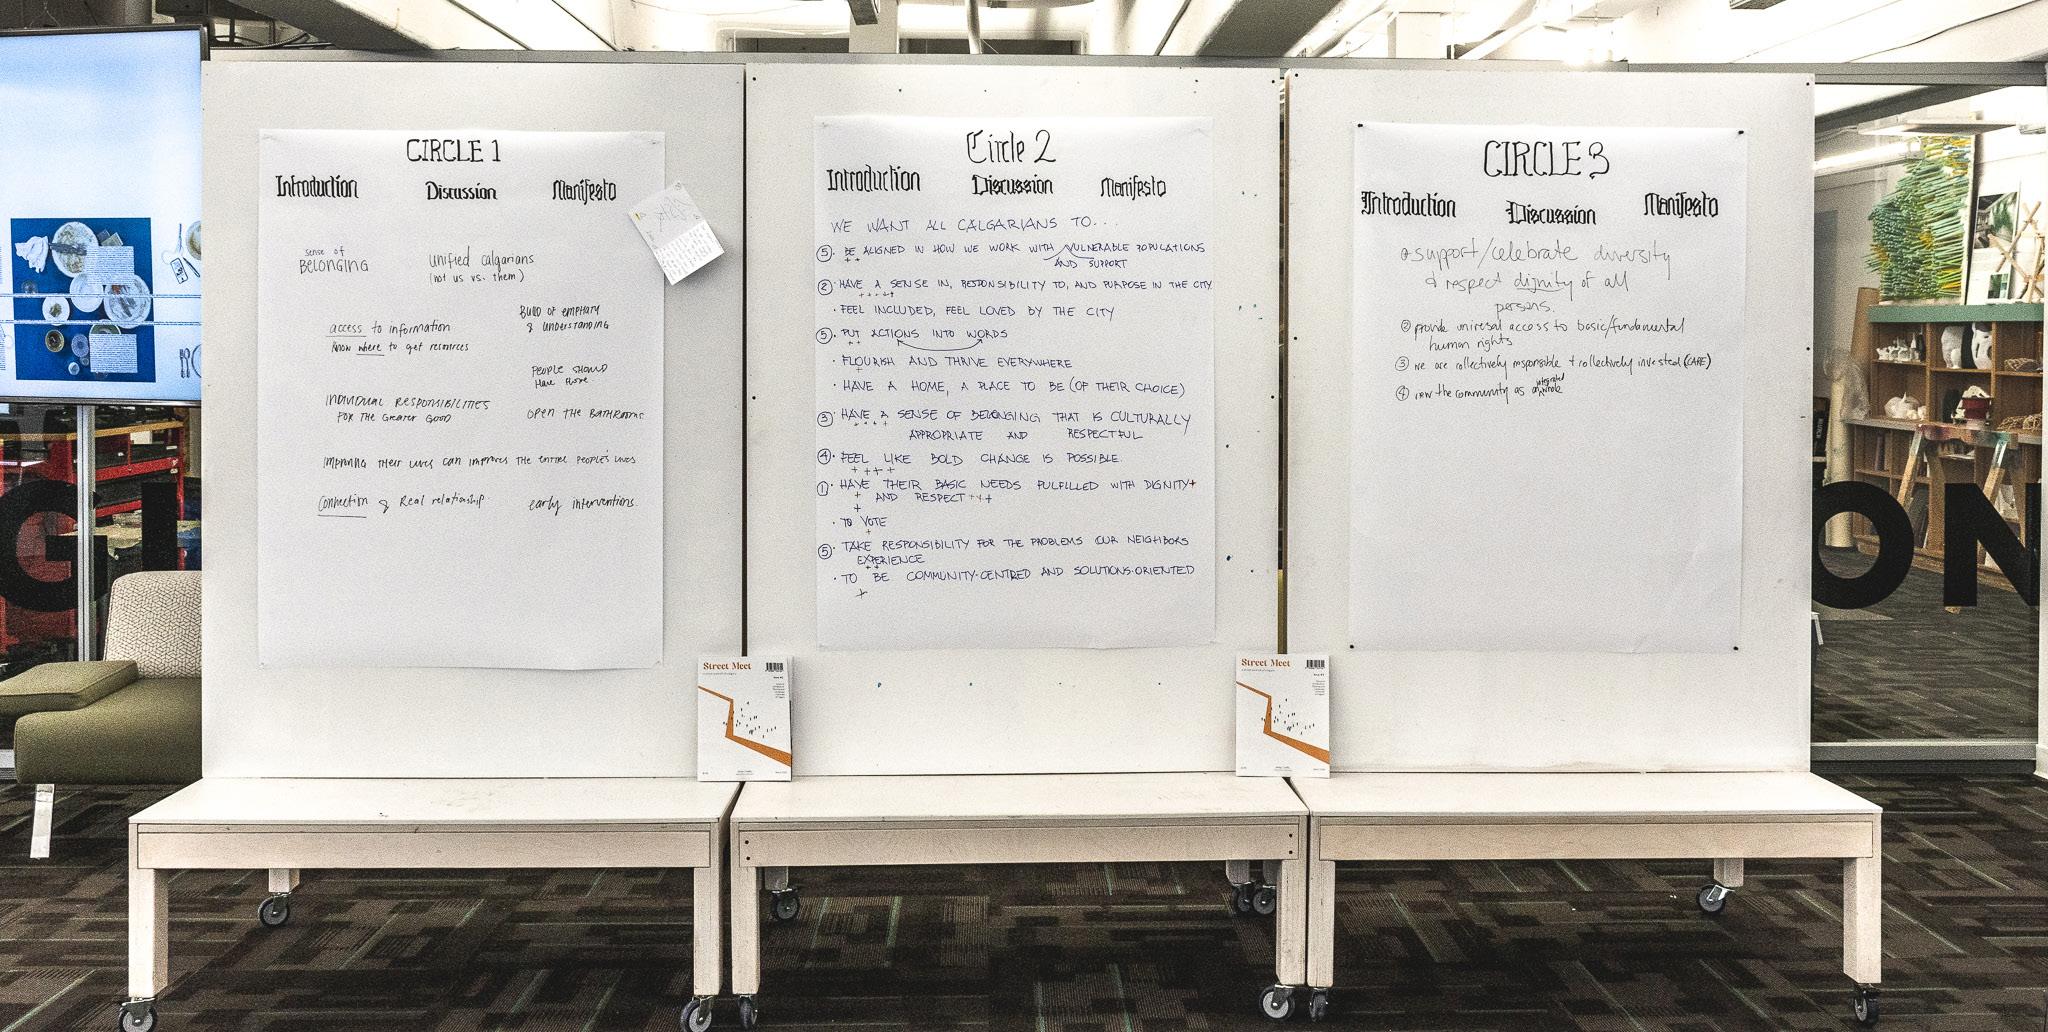 CIRCLE 1
Introduction
Discussion
Manifesto
sense of
BELONGING
Unified calgarians
(not us vs. them)
access to information
know where to get resources
BUILD OF EMPATHY
& UNDERSTANDING
PEOPLE SHOULD
Have
INDIVIDUAL RESPONSIBILITIES
FOR THE GREATER GOOD
OPEN THE BATHROOMS
IMPROVING THEIR LIVES CAN IMPROVES THE ENTIRE PEOPLE'S LIVES
Connection & Real relationship
early interventions.
Circle 2
Introduction
Discussion
Manifesto
WE WANT ALL CALGARIANS TO...
⑤· BE ALIGNED IN HOW WE WORK WITH VULNERABLE POPULATIONS
++
AND SUPPORT
②· HAVE A SENSE IN, RESPONSIBILITY TO, AND PURPOSE IN THE CITY
+++++
· FEEL INCLUDED, FEEL LOVED BY THE CITY
⑤· PUT ACTIONS INTO WORDS
++
· FLOURISH AND THRIVE EVERYWHERE
+
· HAVE A HOME, A PLACE TO BE (OF THEIR CHOICE)
③· HAVE A SENSE OF BELONGING THAT IS CULTURALLY
++++
APPROPRIATE AND RESPECTFUL
④· FEEL LIKE BOLD CHANGE IS POSSIBLE.
++++
①· HAVE THEIR BASIC NEEDS FULFILLED WITH DIGNITY+
+ AND RESPECT +++
+
· TO VOTE
+
⑤· TAKE RESPONSIBILITY FOR THE PROBLEMS OUR NEIGHBORS
EXPERIENCE
++
· TO BE COMMUNITY-CENTRED AND SOLUTIONS-ORIENTED
+
CIRCLE 3
Introduction
Discussion
Manifesto
support/celebrate diversity
& respect dignity of all
persons.
② provide universal access to basic/fundamental
human rights
③ we are collectively responsible + collectively invested (CARE)
integrated
④ view the community as whole
Street Meet
Street Meet
G
ON